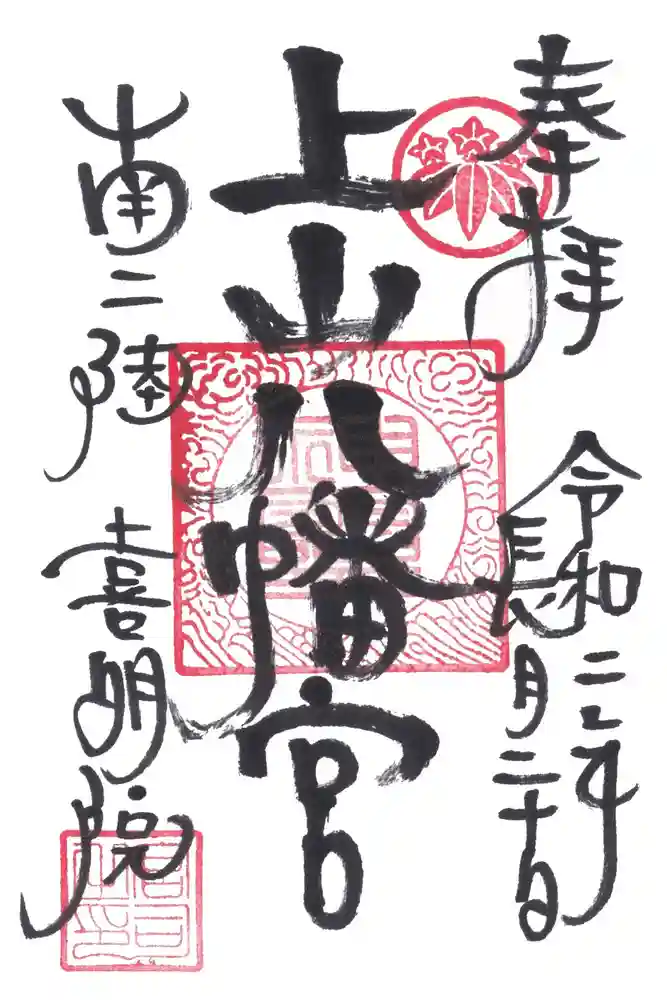 奉拝
令和二年
長月二十日
上山八幡宮
南三陸
喜明院